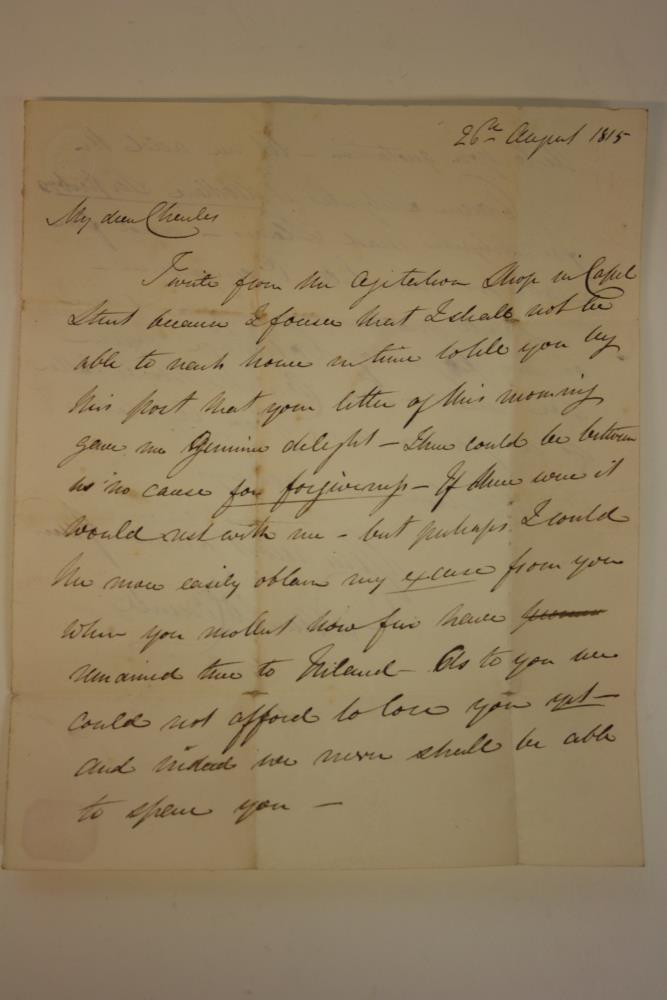 26th August 1815
My dear Charles
I write from the Agitation Shop in Capel
Street because I forsee that I shall not be
able to reach home in time to tell you by
this post that your letter of this morning
gave me Genuine delight – There could be between
us no cause for forgiveness – If there were it
would rest with me – but perhaps I could
the more easily obtain my excuse from you
when you reflect how few have
remained true to Ireland – As to you we
could not afford to lose you yet –
and indeed we never shall be able
to spare you –